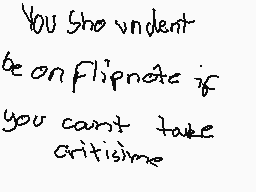 You Shoundent
be on flipnote if
you can't take
critisime